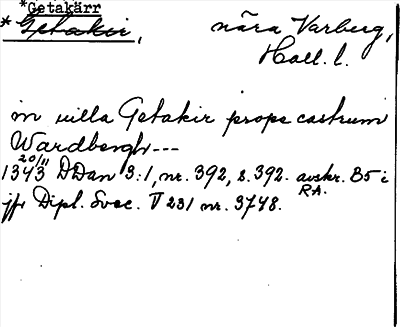 *Getakärr
*Getakir, nära Varberg,
Hall. l.
in villa Getakir prope castrum
Wardbergh---
20/11
1343 DDan 3:1, nr. 392, s. 392. avskr. B5 i
RA.
jfr Dipl. Svec. V 231 nr. 3748.